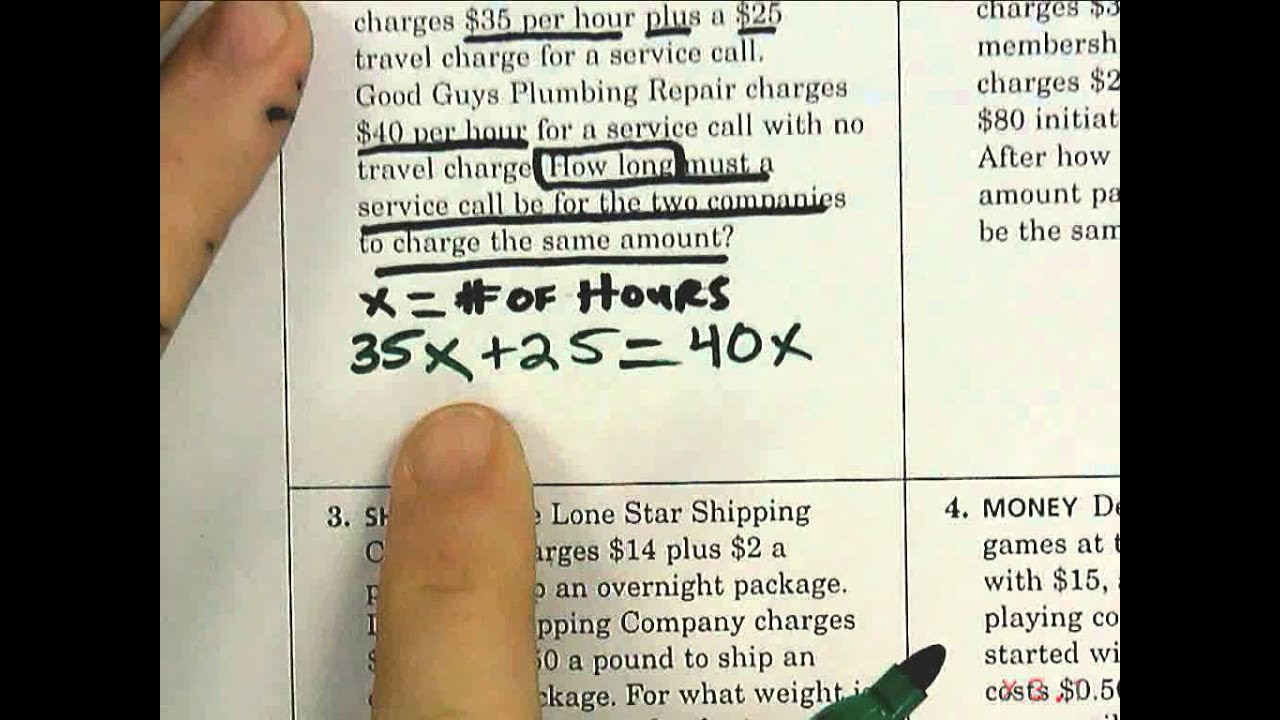 charges $35 per hour plus a $25
travel charge for a service call.
Good Guys Plumbing Repair charges
$40 per hour for a service call with no
travel charge How long must a
service call be for the two companies
to charge the same amount?
x = # OF HOURS
35x + 25 = 40x
charges $3
membersh
charges $2
$80 initiat
After how
amount pa
be the sam
3. SH Lone Star Shipping
C arges $14 plus $2 a
p an overnight package.
pping Company charges
$ 50 a pound to ship an
ckage. For what weight is
4. MONEY De
games at t
with $15,
playing co
started wi
costs $0.50